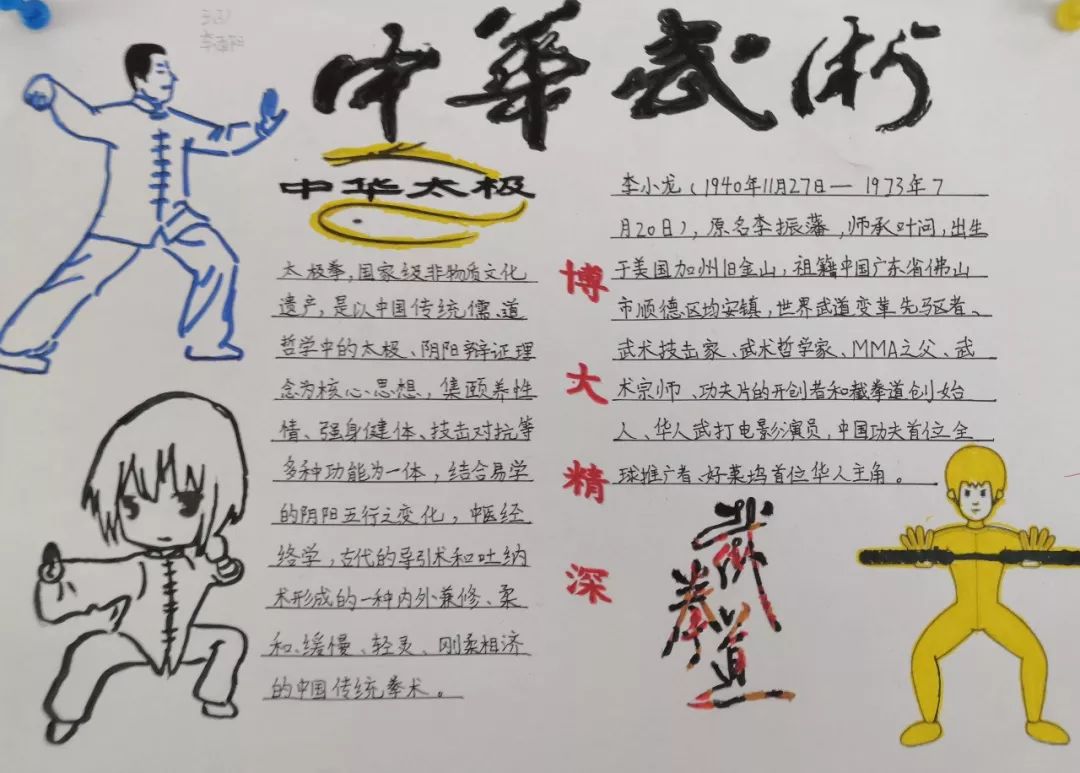 中華武術
中华太极
太极拳,国家级非物质文化
遗产,是以中国传统儒、道
哲学中的太极、阴阳辩证理
念为核心思想,集颐养性
情、强身健体、技击对抗等
多种功能为一体,结合易学
的阴阳五行之变化,中医经
络学,古代的导引术和吐纳
术形成的一种内外兼修、柔
和、缓慢、轻灵、刚柔相济
的中国传统拳术。
博
大
精
深
李小龙(1940年11月27日—1973年7
月20日),原名李振藩,师承叶问,出生
于美国加州旧金山,祖籍中国广东省佛山
市顺德区均安镇,世界武道变革先驱者、
武术技击家、武术哲学家、MMA之父、武
术宗师、功夫片的开创者和截拳道创始
人、华人武打电影演员,中国功夫首位全
球推广者、好莱坞首位华人主角。
武術
拳道